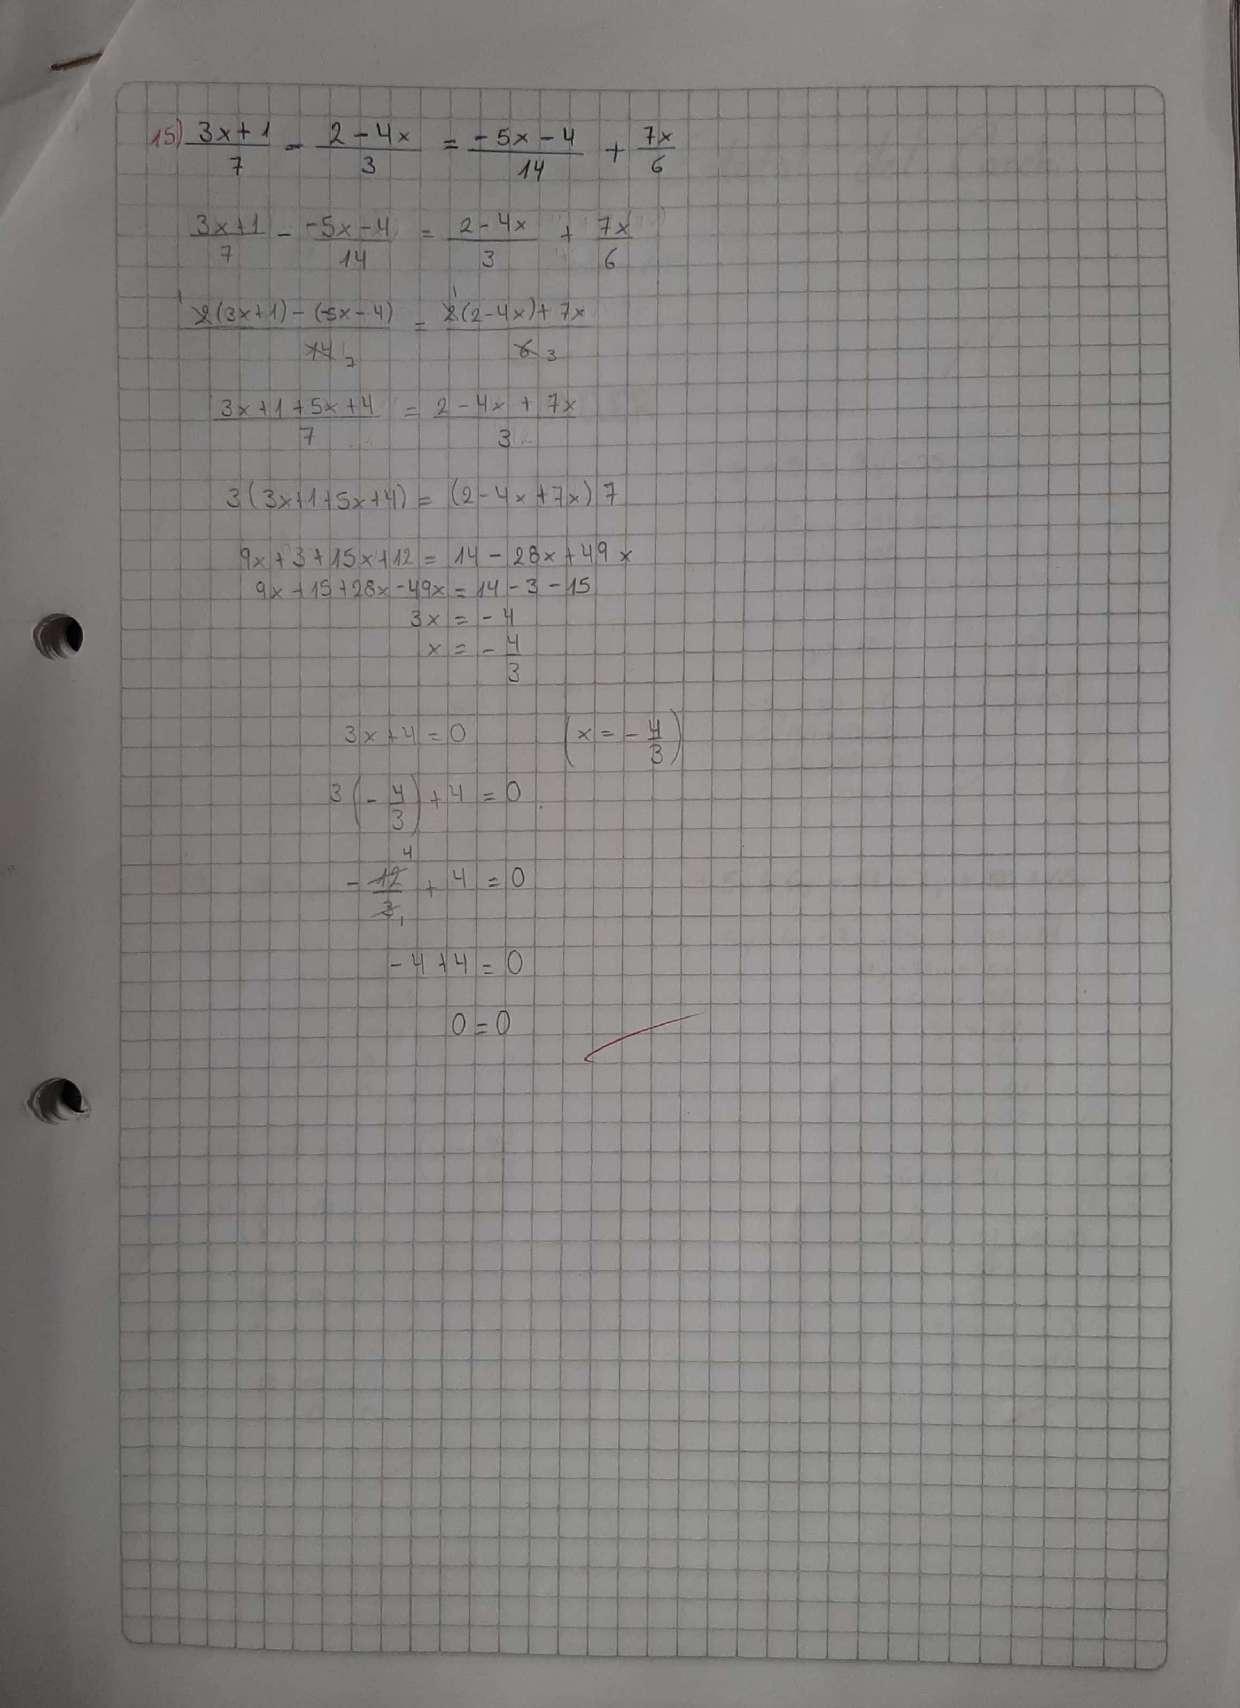 15) (3x+1)/7 - (2-4x)/3 = (-5x-4)/14 + 7x/6
(3x+1)/7 - (-5x-4)/14 = (2-4x)/3 + 7x/6
1 2(3x+1)-(-5x-4)/14 7 = 1 2(2-4x)+7x/6 3
(3x+1+5x+4)/7 = (2-4x+7x)/3
3(3x+1+5x+4) = (2-4x+7x)7
9x+3+15x+12 = 14-28x+49x
9x+15+28x-49x = 14-3-15
3x = -4
x = -4/3
3x+4=0 (x = -4/3)
3(-4/3)+4=0
-12/3 4 1 + 4 = 0
-4+4=0
0=0